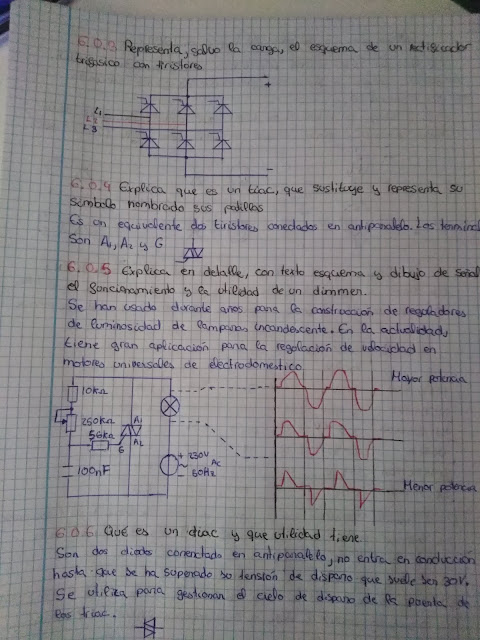 6.0.3 Representa, salvo la carga, el esquema de un rectificador
trifásico con tiristores
+
L1
L2
L3
-
6.0.4 Explica que es un triac, que sustituye y representa su
simbolo nombrado sus patillas
Es un equivalente dos tiristores conectados en antiparalelo. Los terminal
Son A1, A2 y G
6.0.5 Explica en detalle, con texto esquema y dibujo de señal
el funcionamiento y la utilidad de un dimmer.
Se han usado durante años para la construcción de reguladores
de luminosidad de lamparas incandescente. En la actualidad,
tiene gran aplicación para la regulación de velocidad en
motores universales de electrodomestico
10KΩ
250KΩ
56KΩ
G
A1
A2
100nF
+ 230V
~ AC
- 60Hz
Mayor potencia
Menor potencia
6.0.6. Qué es un diac y que utilidad tiene.
Son dos diodo conenctado en antiparalelo, no entra en conducción
hasta que se ha superado so tensión de disparo que suele ser 30V.
Se utiliza para gestionar el cielo de disparo de la puenta de
los triac.